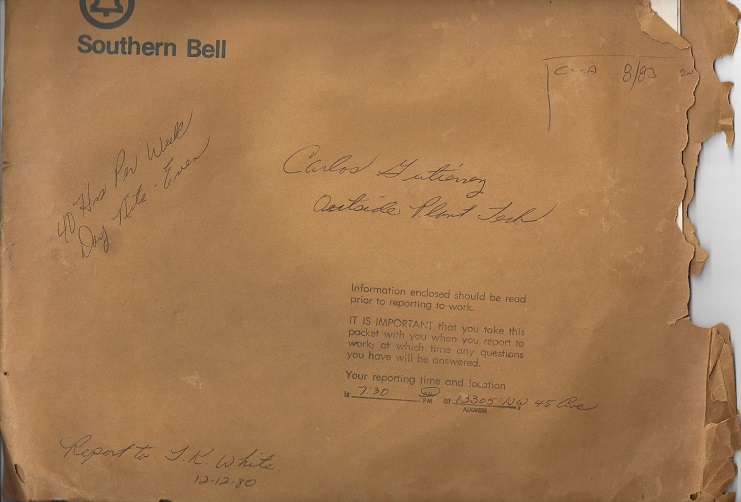 Southern Bell
C--A 8/83
40 Hrs Per Week
Day Nite - Even
Carlos Gutierrez
Outside Plant Tech
Information enclosed should be read
prior to reporting to work.
IT IS IMPORTANT that you take this
packet with you when you report to
work; at which time any questions
you have will be answered.
Your reporting time and location
is 7:30 AM PM at 13305 NW 45 Ave
ADDRESS
Report to J.K. White
12-12-80